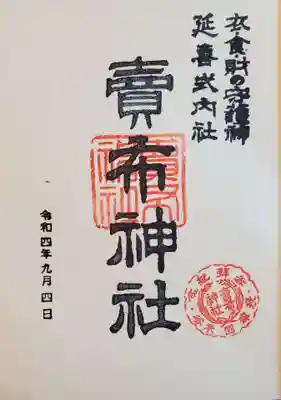 衣食財の守護神
延喜式内社
賣布神社
令和四年九月四日